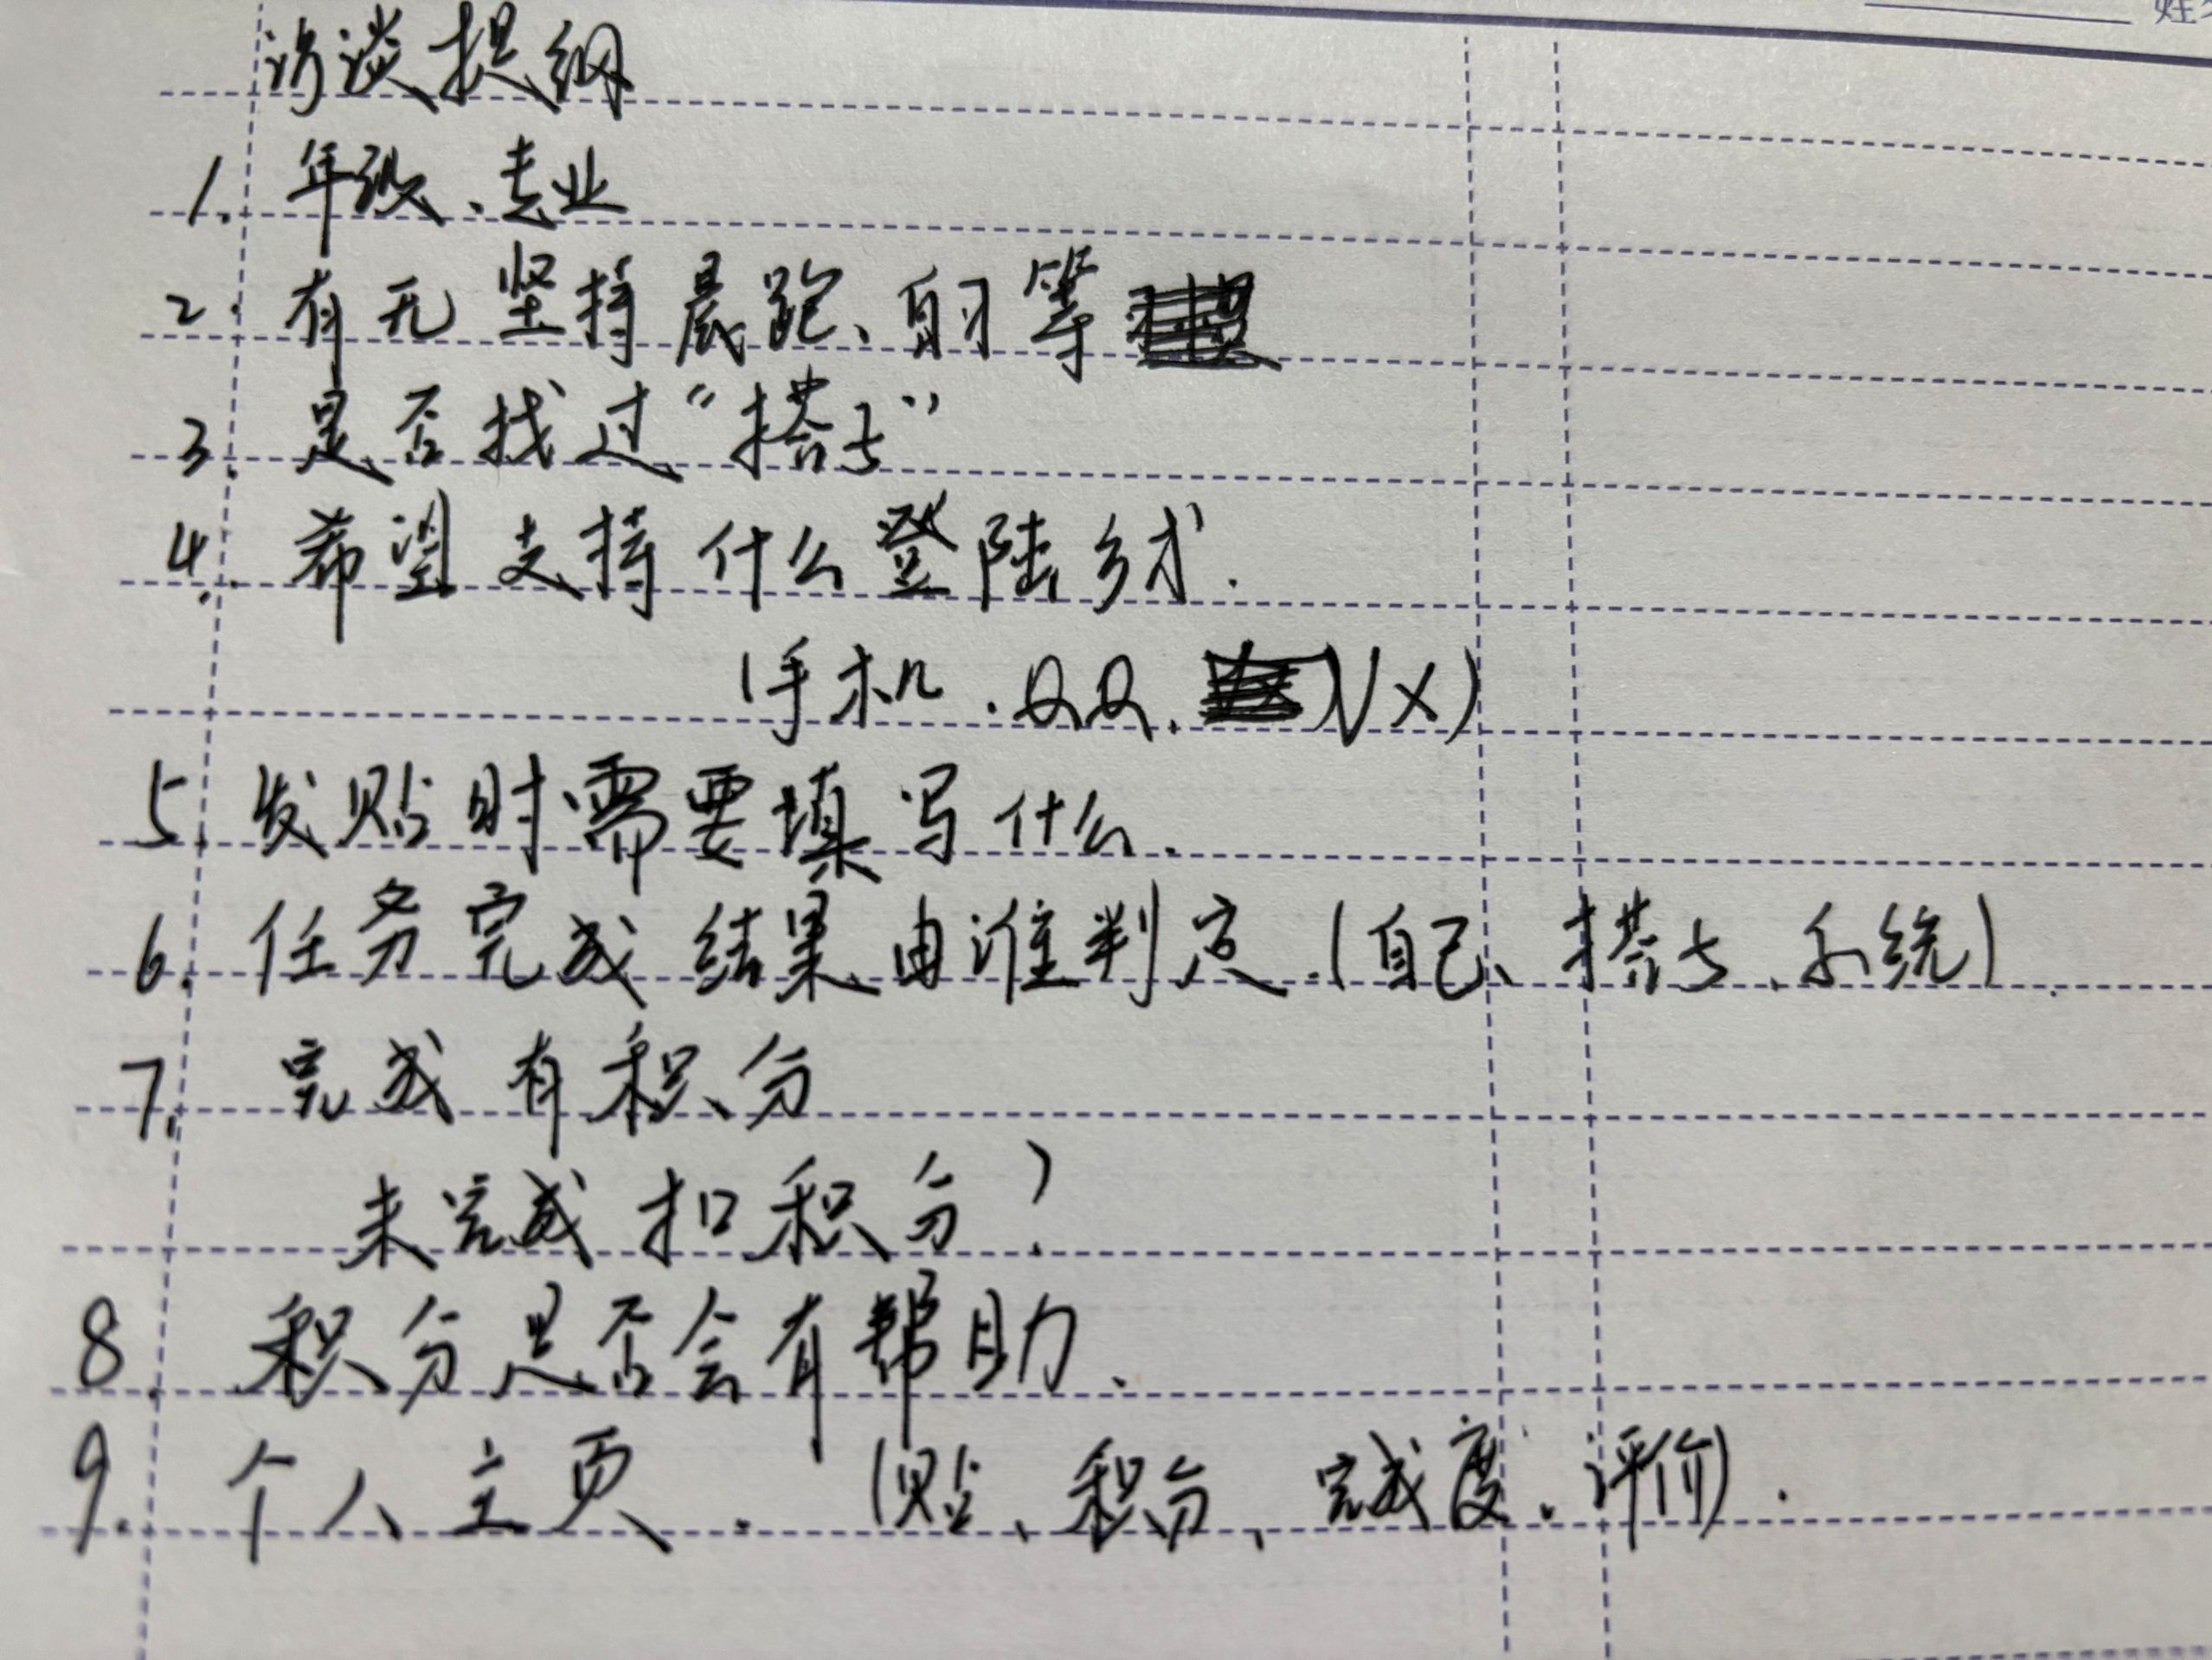 姓
访谈提纲
1. 年级、专业
2. 有无坚持晨跑、自习等
3. 是否找过“搭子”
4. 希望支持什么登陆方式.
(手机、QQ、VX)
5. 发贴时需要填写什么.
6. 任务完成结果由谁判定.(自己、搭子、系统).
7. 完成有积分
未完成扣积分?
8. 积分是否会有帮助.
9. 个人主页. (贴、积分、完成度、评价).